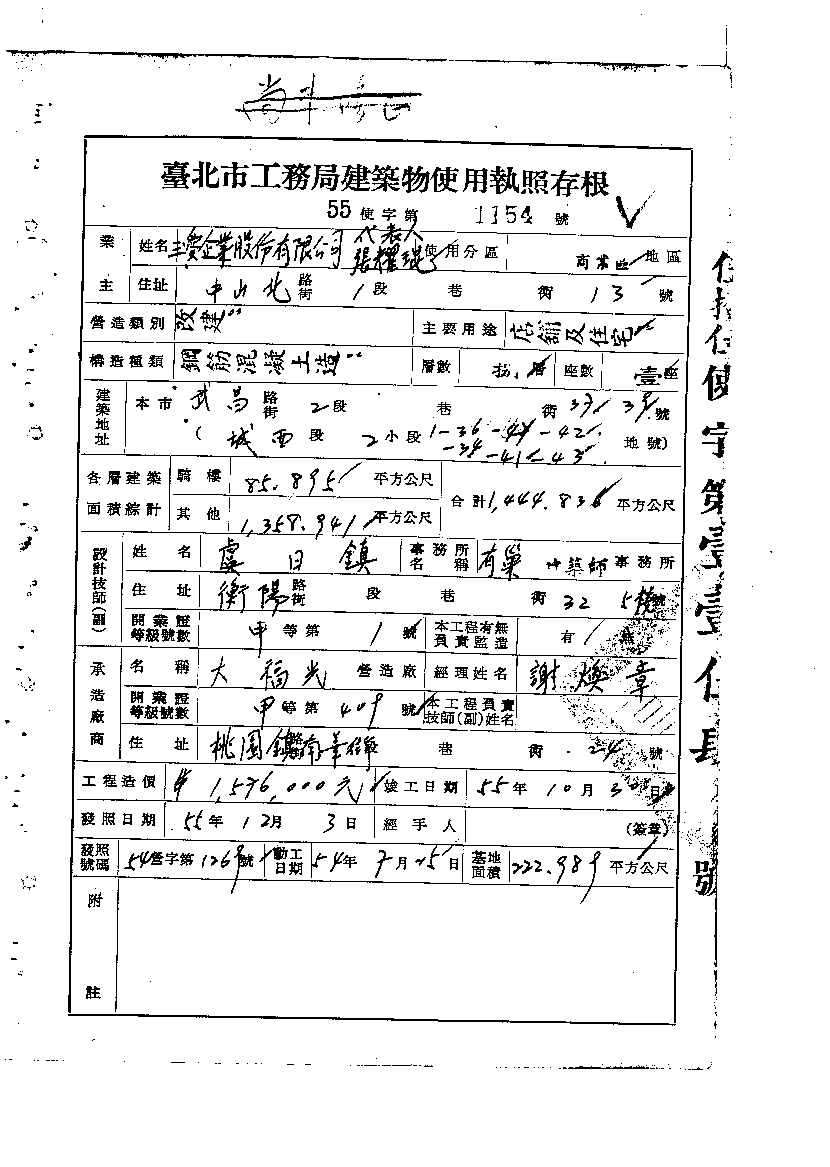 臺北市工務局建築物使用執照存根
55使字第 1154 號
業主 姓名 企業股份有限公司 代表人 張耀 使用分區 商業區 地區
住址 中山北路街 1段 巷 衖 13號
營造類別 改建 主要用途 店舖及住宅
構造種類 鋼筋混凝土造 層數 層 座數 壹座
建築地址 本市 武昌路街 2段 巷 衖 37 39號
(城西段 2小段 1-36 -42 地號)
-34 -41 -43
各層建築面積綜計 騎樓 85.895 平方公尺 合計 1,444.836 平方公尺
其他 1,358.941 平方公尺
設計技師(副) 姓名 虞曰鎮 事務所名稱 有巢 築師事務所
住址 衡陽路街 段 巷 衖 32 5樓 號
開業證等級號數 甲等第 1號 本工程有無負責監造 有 無
承造廠商 名稱 大福光 營造廠 經理姓名 謝煥章
開業證等級號數 甲等第 409號 本工程負責技師(副)姓名
住址 桃園鎮南華 巷 衖 24號
工程造價 1,536,000元 竣工日期 55年10月30日
發照日期 55年12月3日 經手人 (簽章)
發照號碼 54營字第1269號 動工日期 54年7月25日 基地面積 222.989 平方公尺
附註
使字第壹壹
號